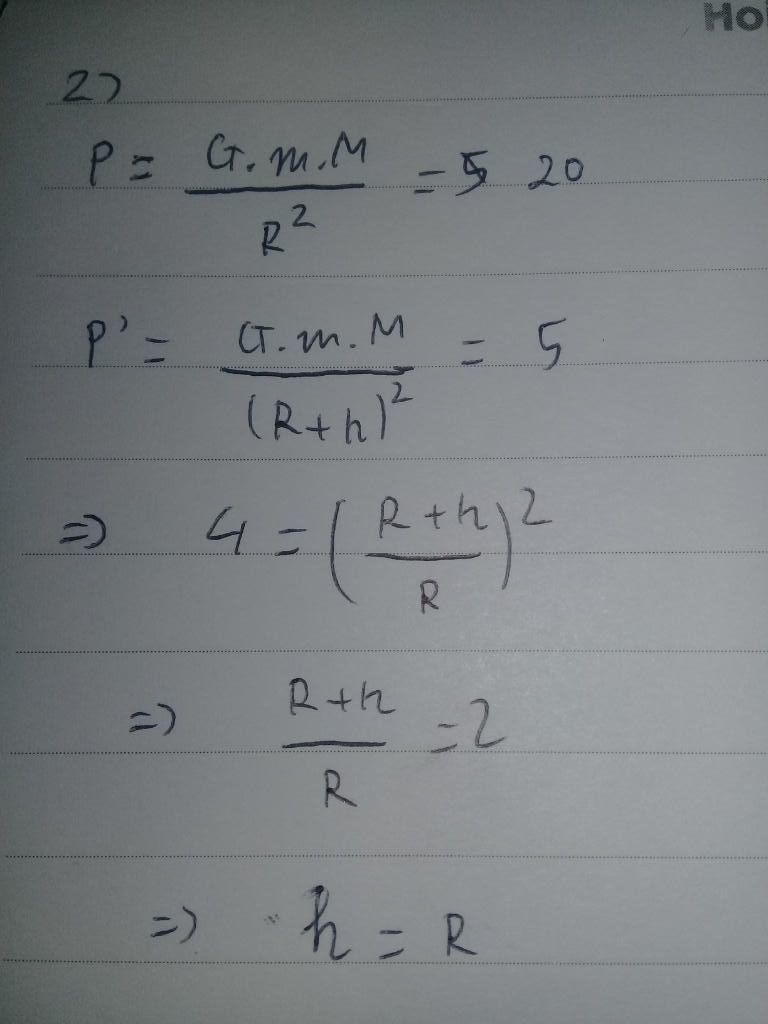 Ho
2)
P = G.m.M / R² = 5 20
P' = G.m.M / (R+h)² = 5
=> 4 = (R+h / R)²
=> R+h / R = 2
=> h = R